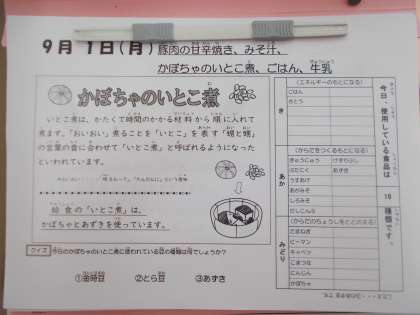 9月 1日(月) 豚肉の甘辛焼き、みそ汁、
かぼちゃのいとこ煮、ごはん、牛乳
かぼちゃのいとこ煮
いとこ煮は、かたくて時間のかかる材料から順に入れて
煮ます。「おいおい」煮ることを「いとこ」を表す「甥と甥」
の言葉の音に合わせて「いとこ煮」と呼ばれるようになった
といわれています。
給食の「いとこ煮」は、
かぼちゃとあずきを使っています。
クイズ 今日のかぼちゃのいとこ煮に使われている豆の種類は何でしょうか?
①金時豆 ②とら豆 ③あずき
今日、使用している食品は
18
種類です。
き
(エネルギーのもとになる)
ごはん
さとう
あか
(からだをつくるもとになる)
ぎゅうにゅう けずりぶし
ぶたにく あずき
うすあげ
あかみそ
しろみそ
だしこんぶ
みどり
(からだのちょうしをととのえる)
たまねぎ
ピーマン
キャベツ
こまつな
にんじん
かぼちゃ